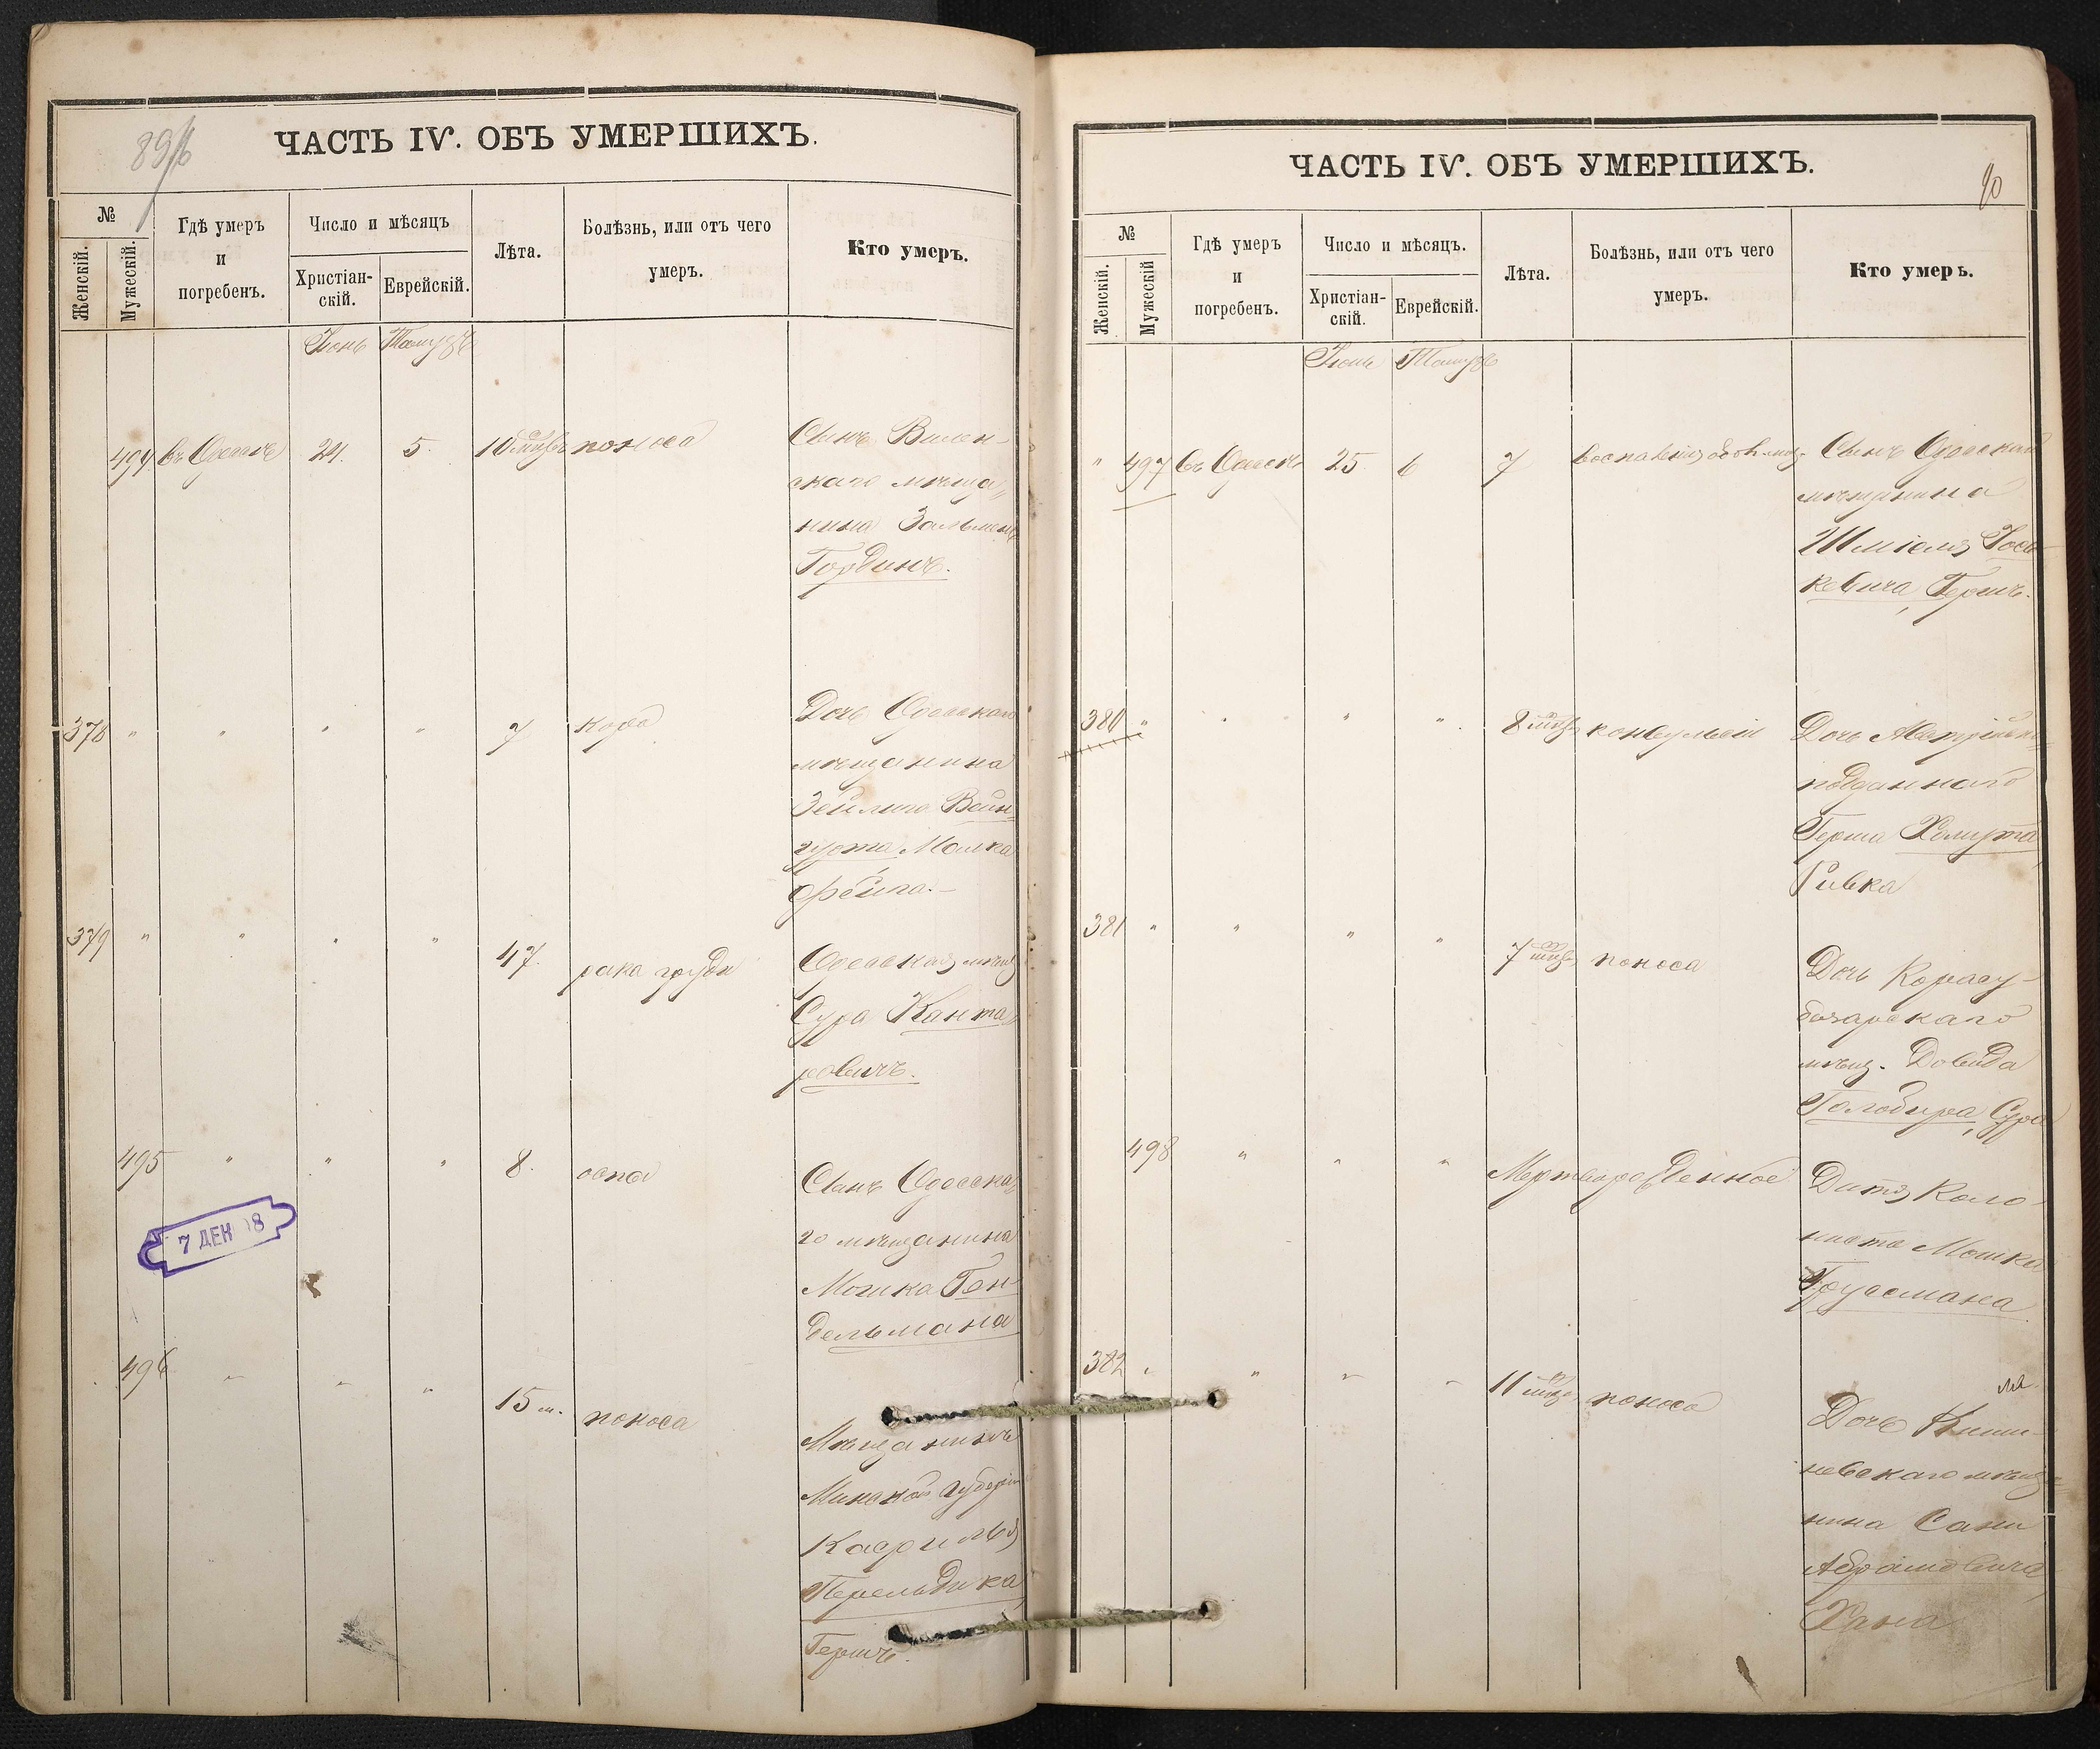 89
ЧАСТЬ IV. ОБЪ УМЕРШИХЪ.
№
Женскій.
Мужескій.
Гдѣ умеръ
и
погребенъ.
Число и мѣсяцъ
Христіан-
скій.
Еврейскій.
Лѣта.
Болѣзнь, или отъ чего
умеръ.
Кто умеръ.
Іюнь Тамузъ
494 въ Одессѣ 24. 5. 10 поноса
Сынъ Вилен-
скаго мѣща-
нина Зальмена
Гординъ.
378 " " " " 7 кора
Дочь Одесскаго
мѣщанина
Зейлига Вайн-
гурта, Малка
Фейга.
379 " " " " 47. рака груди
Одесская мѣщ
Сура Канта-
ровичъ.
495 " " " 8. оспа
Сынъ Одесска-
го мѣщанина
Мошка Ген-
дельмана
7 ДЕК 8
496 " " " 15 м. поноса
Мѣщанинъ
Минской губерніи
Касриль
Перельдика
Гершъ.
ЧАСТЬ IV. ОБЪ УМЕРШИХЪ.
90
№
Женскій.
Мужескій
Гдѣ умеръ
и
погребенъ.
Число и мѣсяцъ.
Христіан-
скій.
Еврейскій.
Лѣта.
Болѣзнь, или отъ чего
умеръ.
Кто умеръ.
Іюнь Тамузъ
" 497 въ Одессѣ 25 6 7 воспаленія
Сынъ Одесскаго
мѣщанина
Шміеля Іось-
кевича, Гершъ.
380 " " " " 8 конвульсіи
Дочь Австрійска-
подданнаго
Герша Халирта,
Ривка
381 " " " " 7 поноса
Дочь Карасу-
базарскаго
мѣщ. Довида
Голобира, Сура
498 " " " Мертворожденное
Дитя Коло-
ниста Мошка
Гроусмана
382 " " " " 11 поноса
Дочь Киши-
невскаго мѣща-
нина Сани
Абрамовича,
Хана